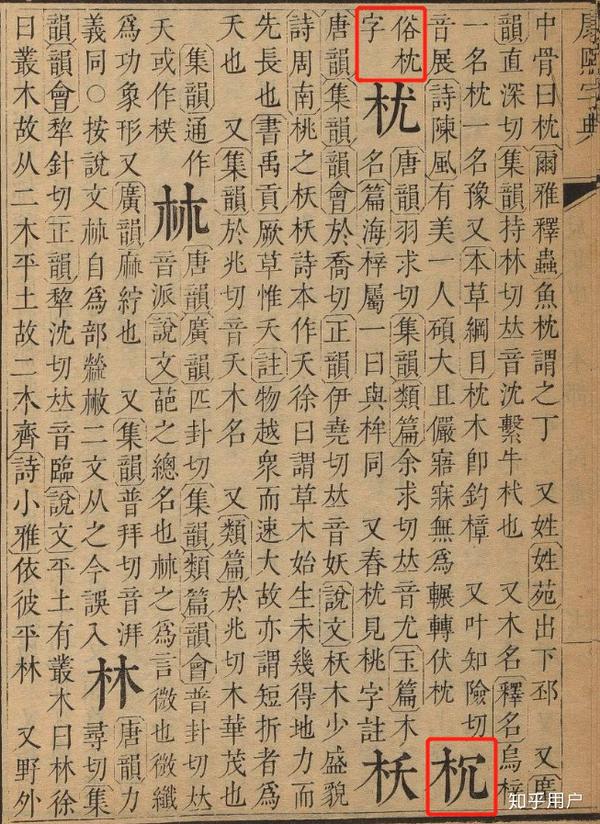 康熙字典
中骨曰枕爾雅釋蟲魚枕謂之丁 又姓姓苑出下邳 又廣
韻直深切集韻持林切𠀤音沈繫牛杙也 又木名釋名烏梓
一名枕一名豫又本草綱目枕木卽釣樟 又叶知險切
音展詩陳風有美一人碩大且儼寤寐無爲輾轉伏枕
俗枕
字
唐韻羽求切集韻類篇余求切𠀤音尤玉篇木
名篇海梓屬一曰與桙同 又春 見桃字註
枖
唐韻集韻韻會於喬切正韻伊堯切𠀤音妖說文枖木少盛貌
詩周南桃之枖枖詩本作夭徐曰謂草木始生未幾得地力而
先長也書禹貢厥草惟夭註物越衆而速大故亦謂短折者爲
夭也 又集韻於兆切音夭木名 又類篇於兆切木華茂也
集韻通作
夭或作
𣏟
唐韻廣韻匹卦切集韻類篇韻會普卦切𠀤
音派說文葩之總名也𣏟之爲言微也微纖
爲功象形又廣韻麻紵也 又集韻普拜切音湃
義同○按說文𣏟自爲部 二文从之今誤入
林
唐韻力
尋切集
韻韻會犂針切正韻犂沈切𠀤音臨說文平土有叢木曰林徐
曰叢木故从二木平土故二木齊詩小雅依彼平林 又野外
知乎用户